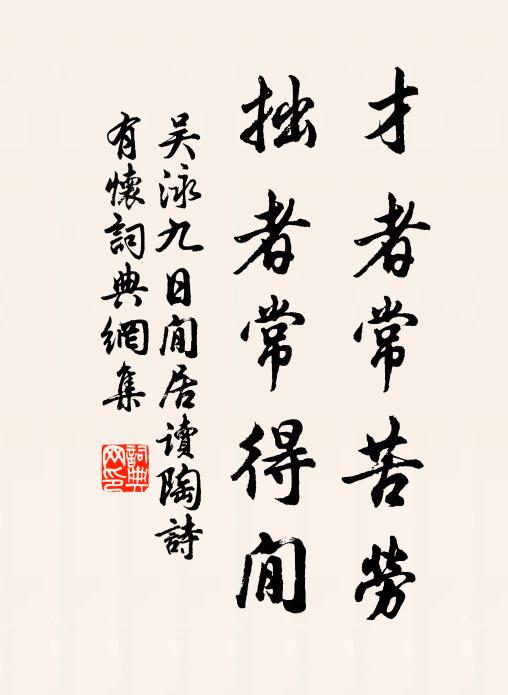 才者常苦勞
拙者常得閒
吴泳九日閒居讀陶詩
有懷詞典網集
詞典
网印